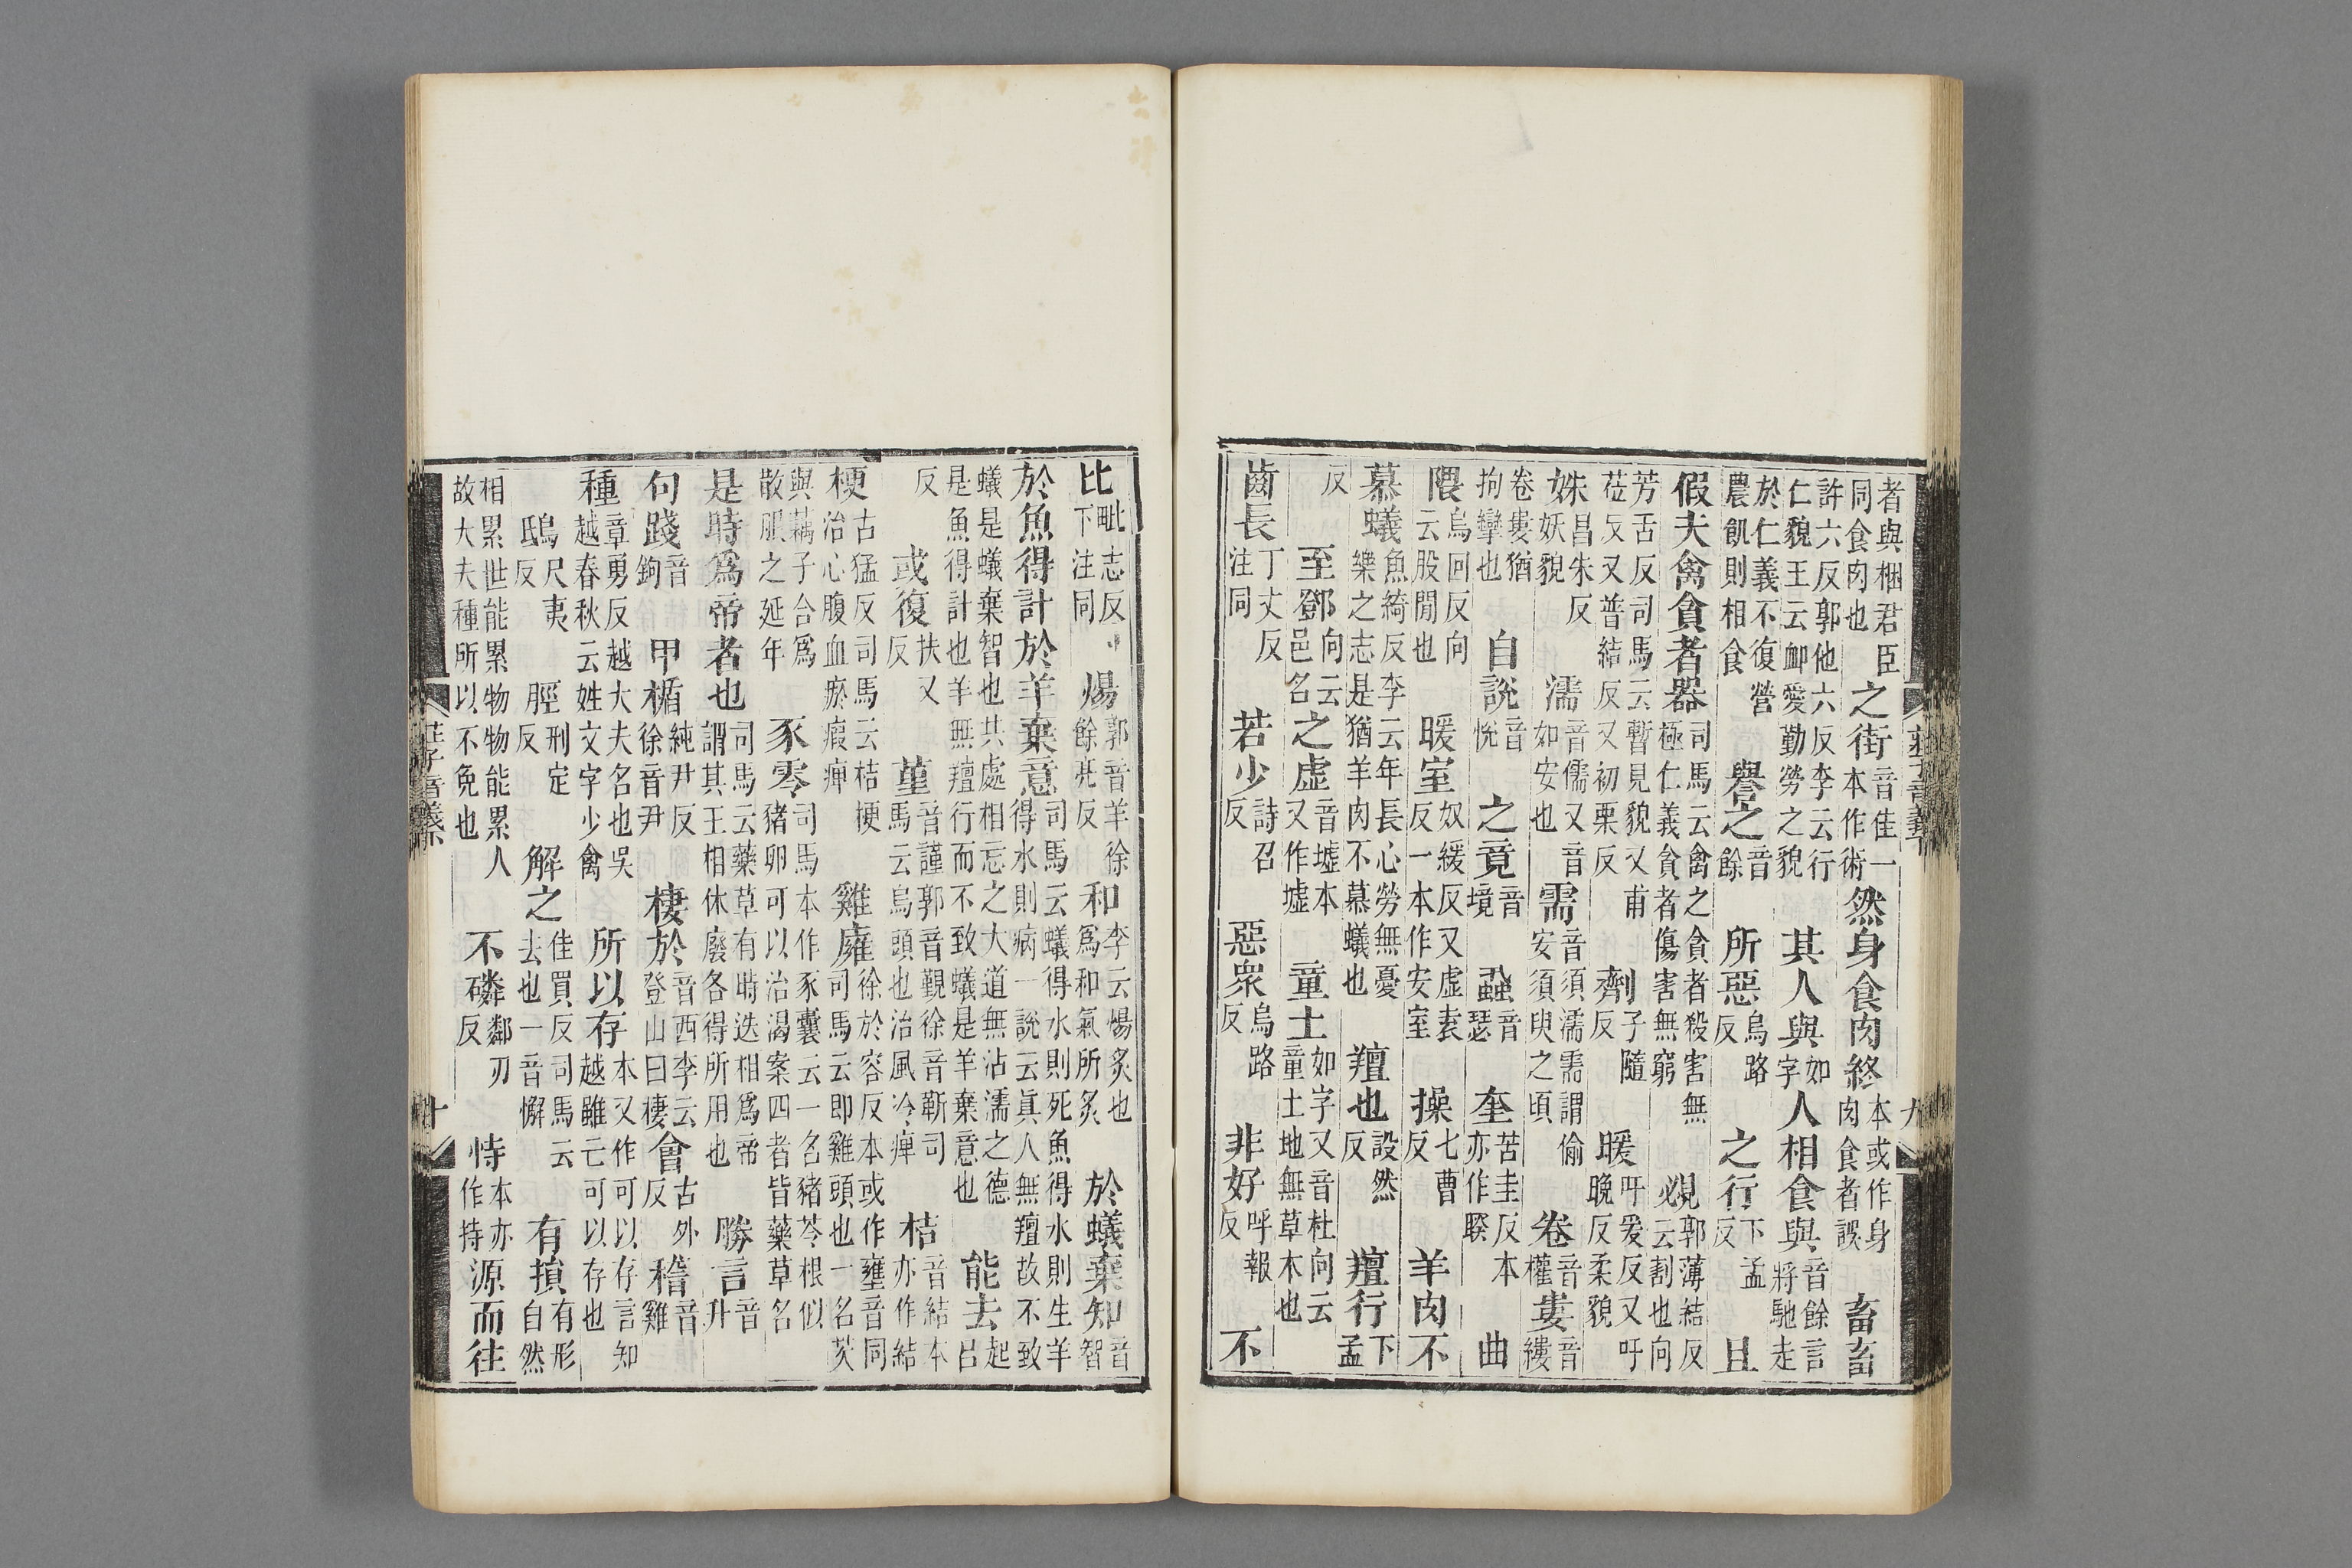 者與梱君臣同食肉也之街音佳一本作術然身食肉終本或作身肉食者誤畜畜
許六反郭他六反李云行仁貌王云卹愛勤勞之貌其人與如字人相食與音餘言將馳走
於仁義不復營農飢則相食譽之音餘所惡烏路反之行下孟反且
假夫禽貪者器司馬云禽之貪者殺害無極仁義貪者傷害無窮覕郭薄結反云割也向
芳舌反司馬云暫見貌又甫莅反又普結反又初栗反劑子隨反暖吁爰反又吁晚反柔貌
姝昌朱反妖貌濡音儒又音如安也需音須濡需謂偷安須臾之頃卷音權婁音縷
卷婁猶拘攣也自說音悅之竟音境蝨音瑟奎苦圭反本亦作睽曲
隈烏回反向云股閒也暖室奴緩反又虛袁反一本作安室操七曹反羊肉不
慕蟻魚綺反李云年長心勞無憂樂之志是猶羊肉不慕蟻也羶也設然反羶行下孟
反至鄧向云邑名之虛音墟本又作墟童土如字又音杜向云童土地無草木也
齒長丁丈反注同若少詩召反惡衆烏路反非好呼報反不
莊子音義下
九
比毗志反下注同煬郭音羊徐餘亮反和李云煬炙也爲和氣所炙於蟻棄知音智
於魚得計於羊棄意司馬云蟻得水則死魚得水則生羊得水則病一說云眞人無羶故不致
蟻是蟻棄智也共處相忘之大道無沾濡之德是魚得計也羊無羶行而不致蟻是羊棄意也能去起呂
反或復扶又反菫音謹郭音覲徐音靳司馬云烏頭也治風冷痺桔音結本亦作結
梗古猛反司馬云桔梗治心腹血瘀瘕痺雞㢕徐於容反本或作壅音同司馬云即雞頭也一名芡
與藕子合爲散服之延年豕零司馬本作豕囊云一名豬苓根似豬卵可以治渴案四者皆藥草名
是時爲帝者也司馬云藥草有時迭相爲帝謂其王相休廢各得所用也勝言音升
句踐音鉤甲楯純尹反徐音尹棲於音西李云登山曰棲會古外反稽音雞
種章勇反越大夫名也吳越春秋云姓文字少禽所以存本又作可以存言知越雖亡可以存也
鴟尺夷反脛刑定反解之佳買反司馬云去也一音懈有損有形自然
相累世能累物物能累人故大夫種所以不免也不磷鄰刃反恃本亦作持源而往
莊子音義下
十